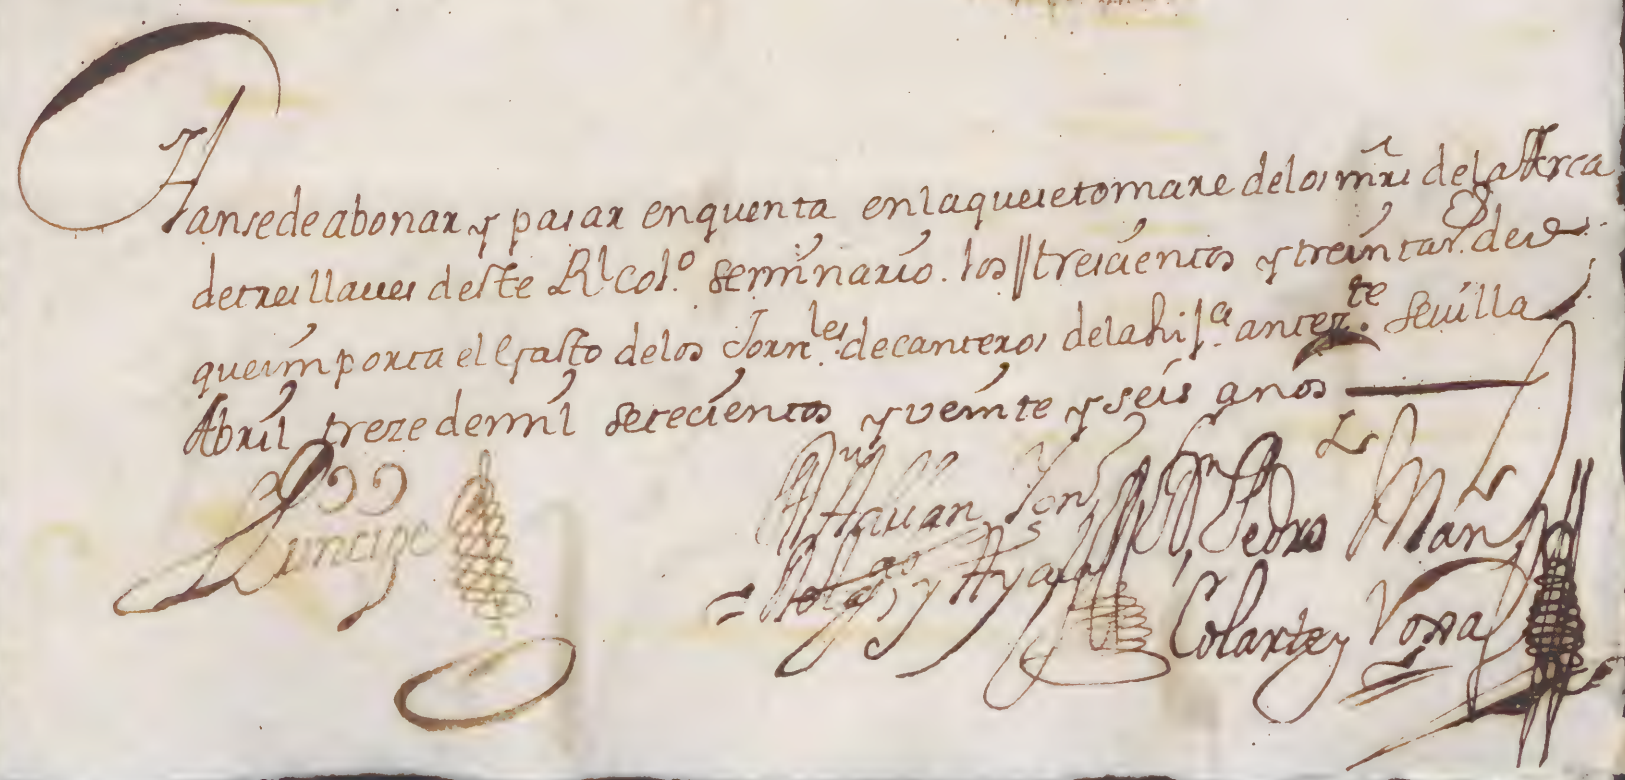 Hanse de abonar y pasar en quenta en la que se tomare de los mrs de la Arca
de tres llaues deste Rl Colº. seminario. los || trescientos y treinta rs. de vº
que importa el Gasto de los Jornles. de canteros de la hijª. antezte. Seuilla
Abril treze de mil setecientos y veinte y seis años
Dn Pedro Man
Colarte y